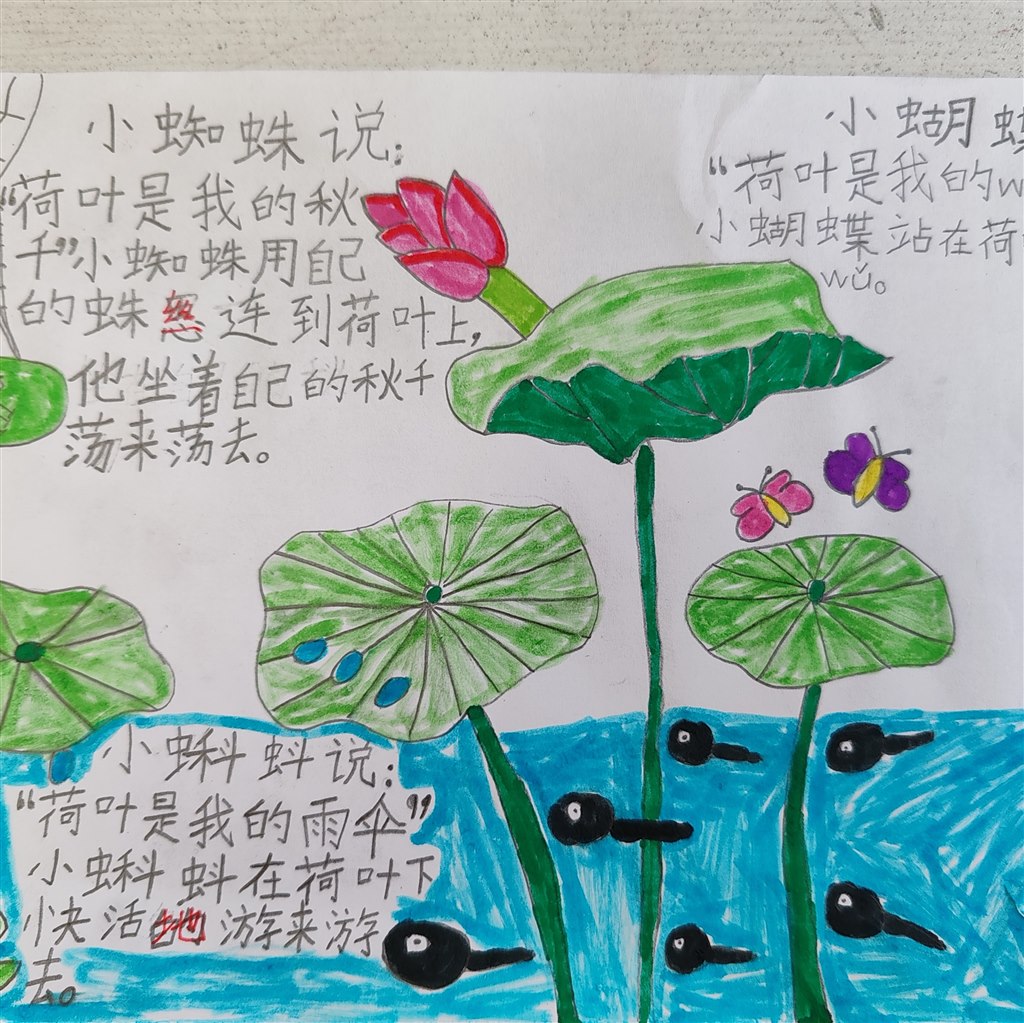 小蜘蛛说:
“荷叶是我的秋
千”小蜘蛛用自己
的蛛丝连到荷叶上,
他坐着自己的秋千
荡来荡去。
小蝴
“荷叶是我的w
小蝴蝶站在荷
wǔ。
小蝌蚪说:
“荷叶是我的雨伞”
小蝌蚪在荷叶下
快活地游来游
去。